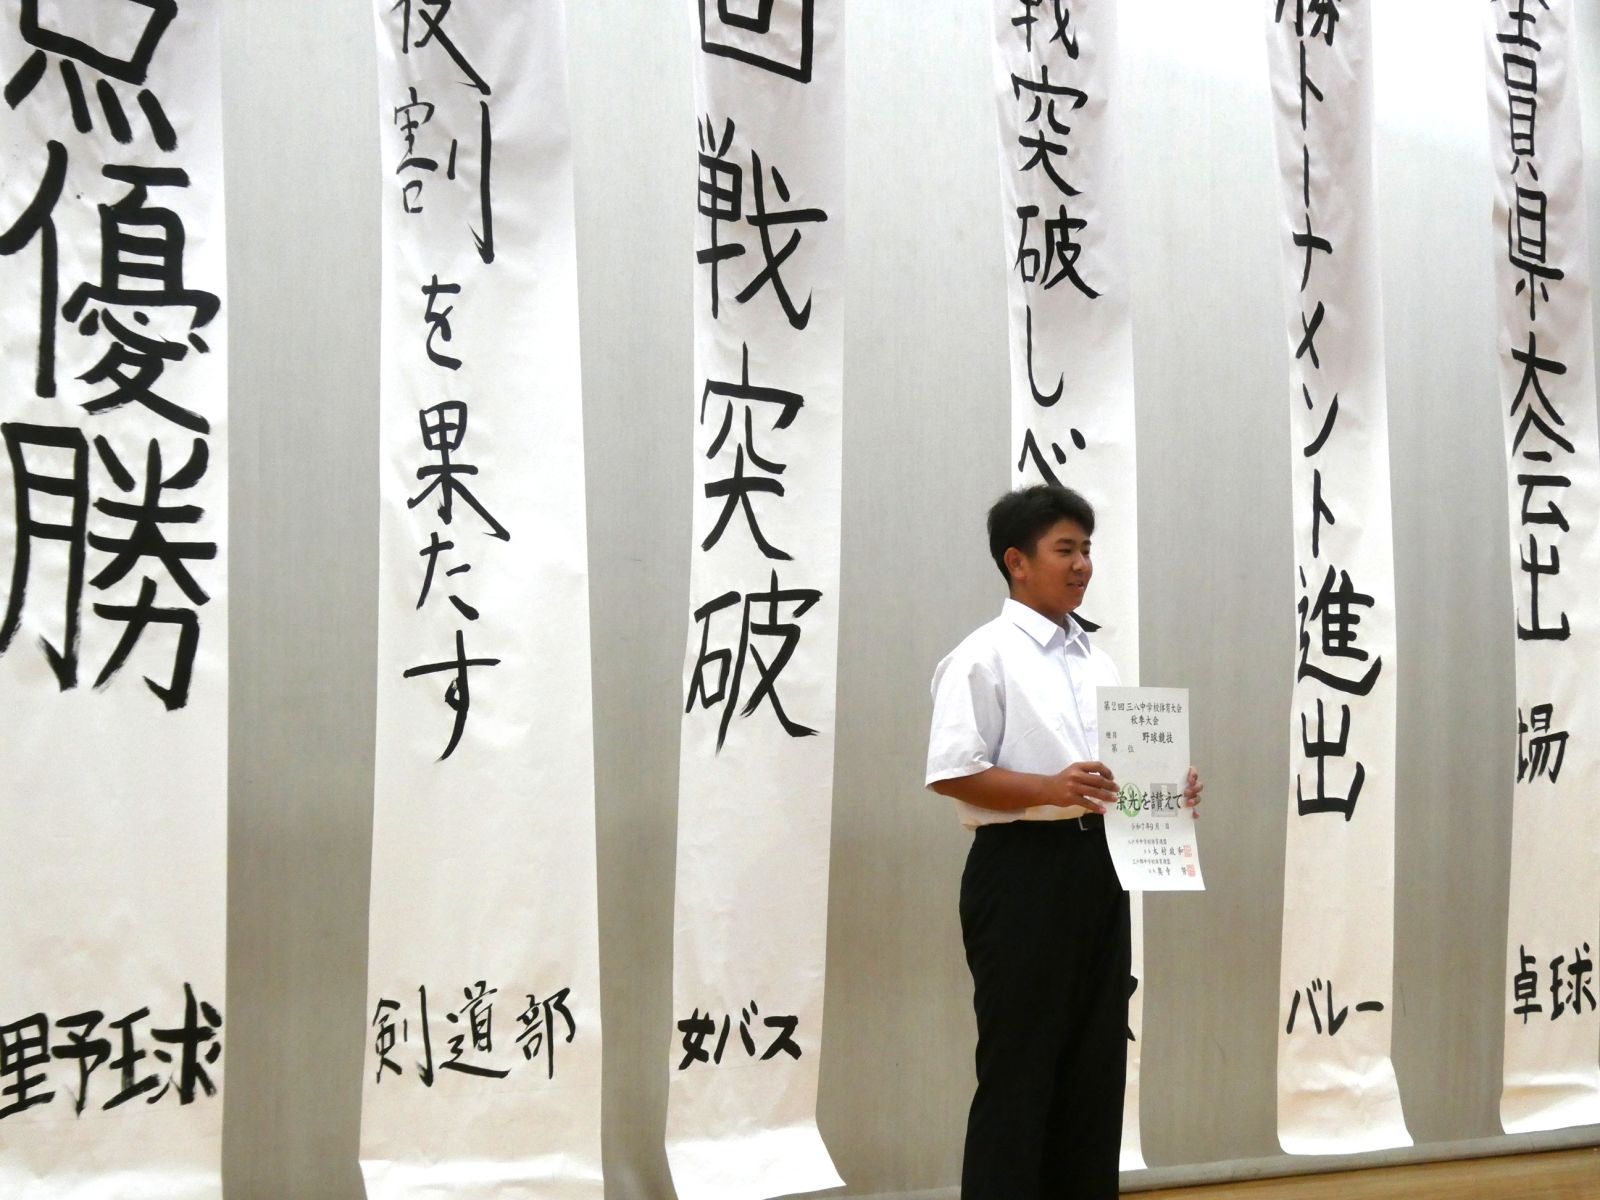 優勝
野球
役割を果たす
剣道部
回戦突破
女バス
戦突破しベ
勝トーナメント進出
バレー
全員県大会出場
卓球
第2回三八中学校体育大会
秋季大会
種目 野球競技
第 位
栄光を讃えて
令和7年9月 日